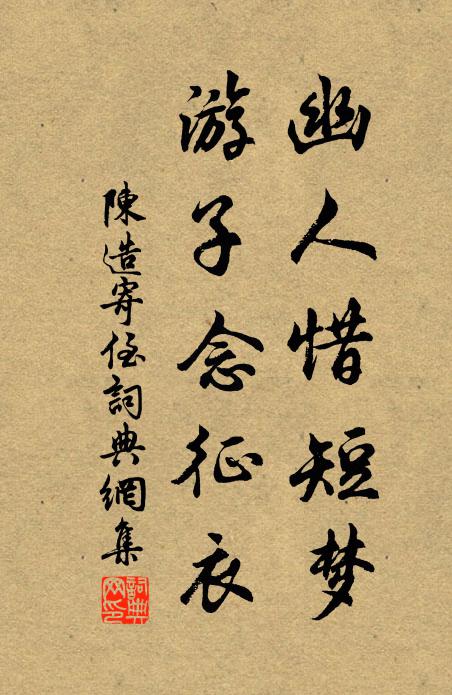 幽人惜短梦
游子念征衣
陳造寄侄詞典網集
詞典
网印